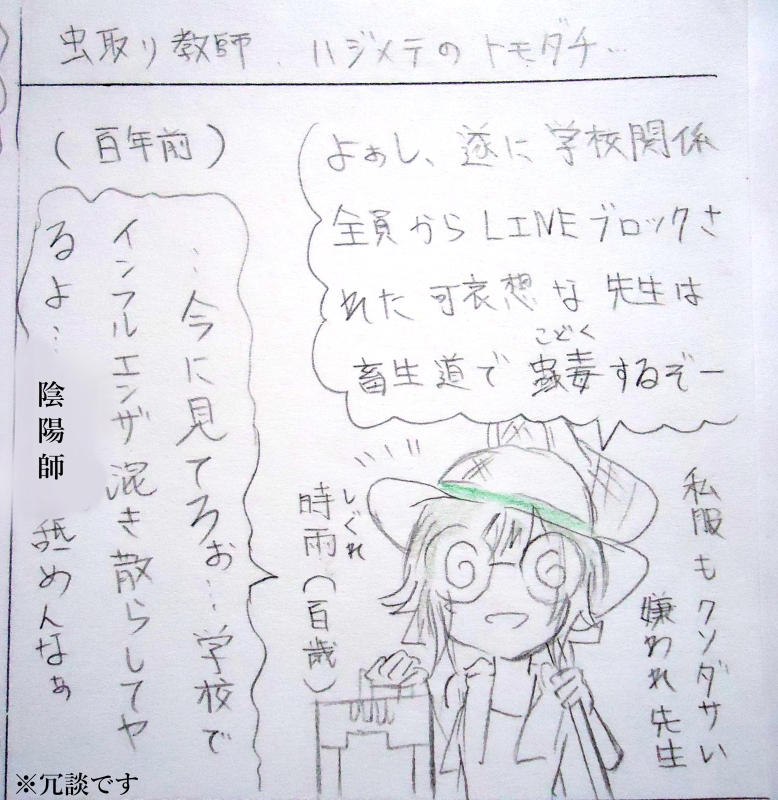 虫取り教師. ハジメテのトモダチ…
(百年前)
よぉし、遂に学校関係
全員からLINEブロックさ
れた可哀想な先生は
こどく
畜生道で蟲毒するぞー
私服もクソダサい
嫌われ先生
しぐれ
時雨(百歳)
…今に見てろぉ…学校で
インフルエンザ混き散らしてヤ
るよ…陰陽師舐めんなぁ
※冗談です